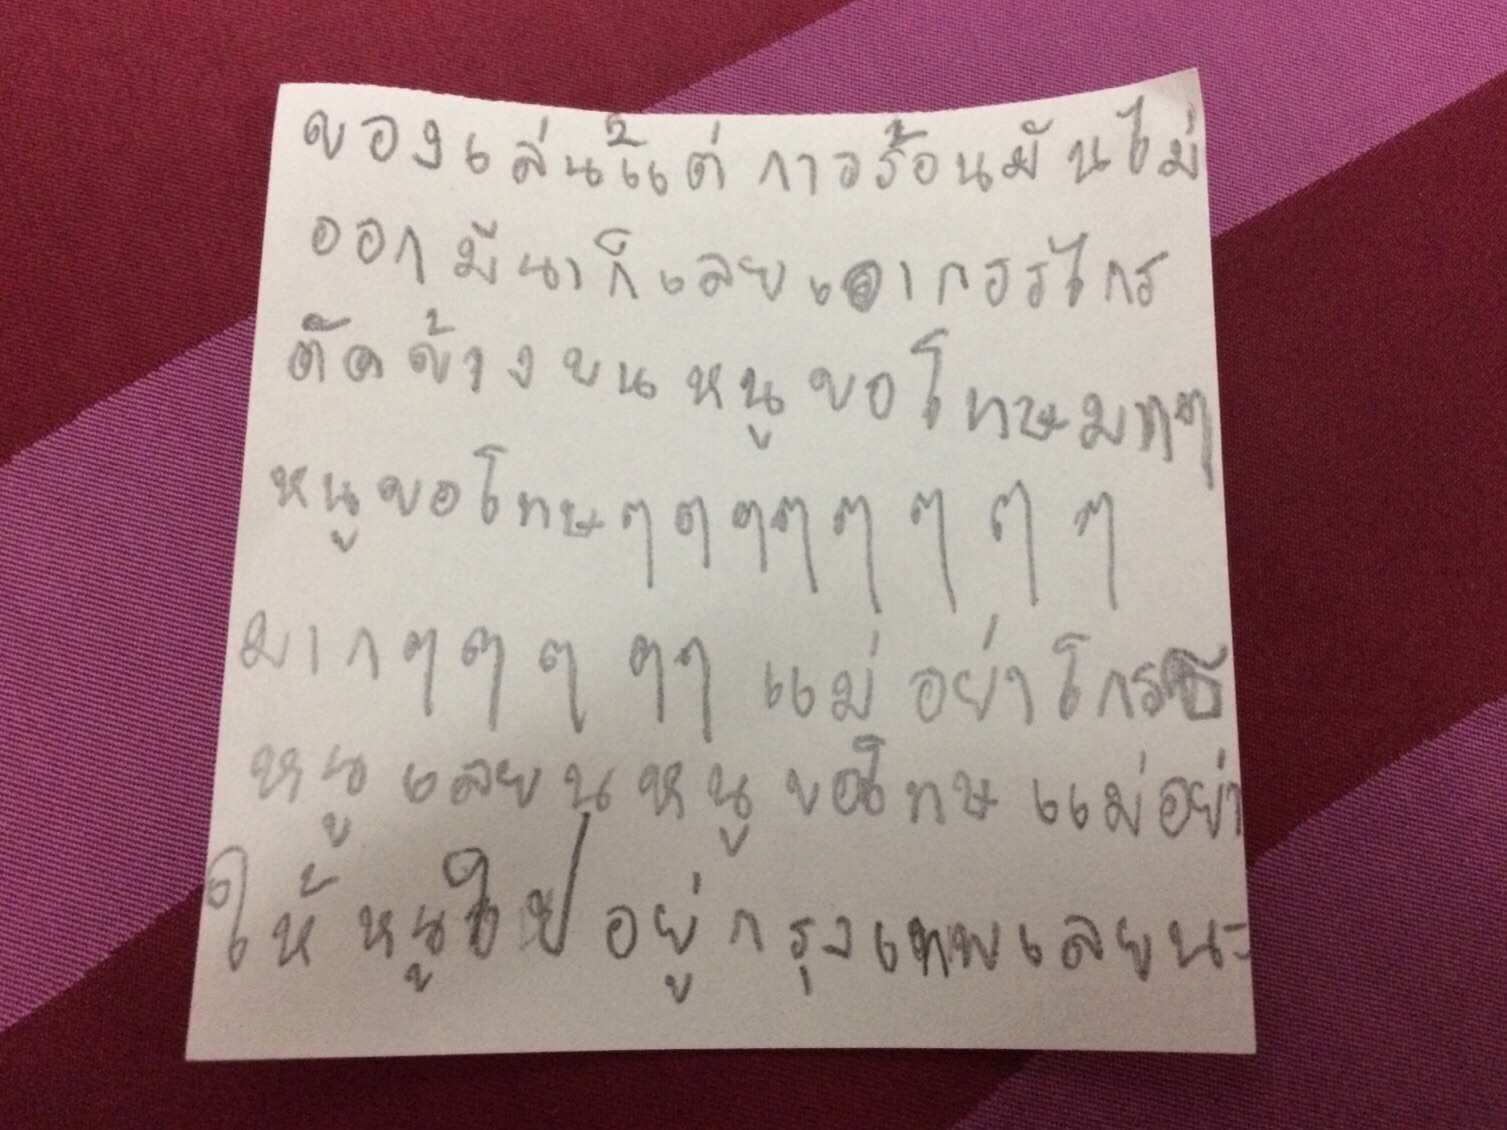 ของเล่นนี้แต่ กาวร้อนมันไม่
ออก มีนาก็เลยเอากรรไกร
ตัดข้างบน หนูขอโทษมากๆ
หนูขอโทษๆๆๆๆๆๆๆๆ
มากๆๆๆๆๆ แม่ อย่าโกรธ
หนูเลยน หนูขอโทษ แม่อย่า
ให้หนูไปอยู่กรุงเทพเลยนะ